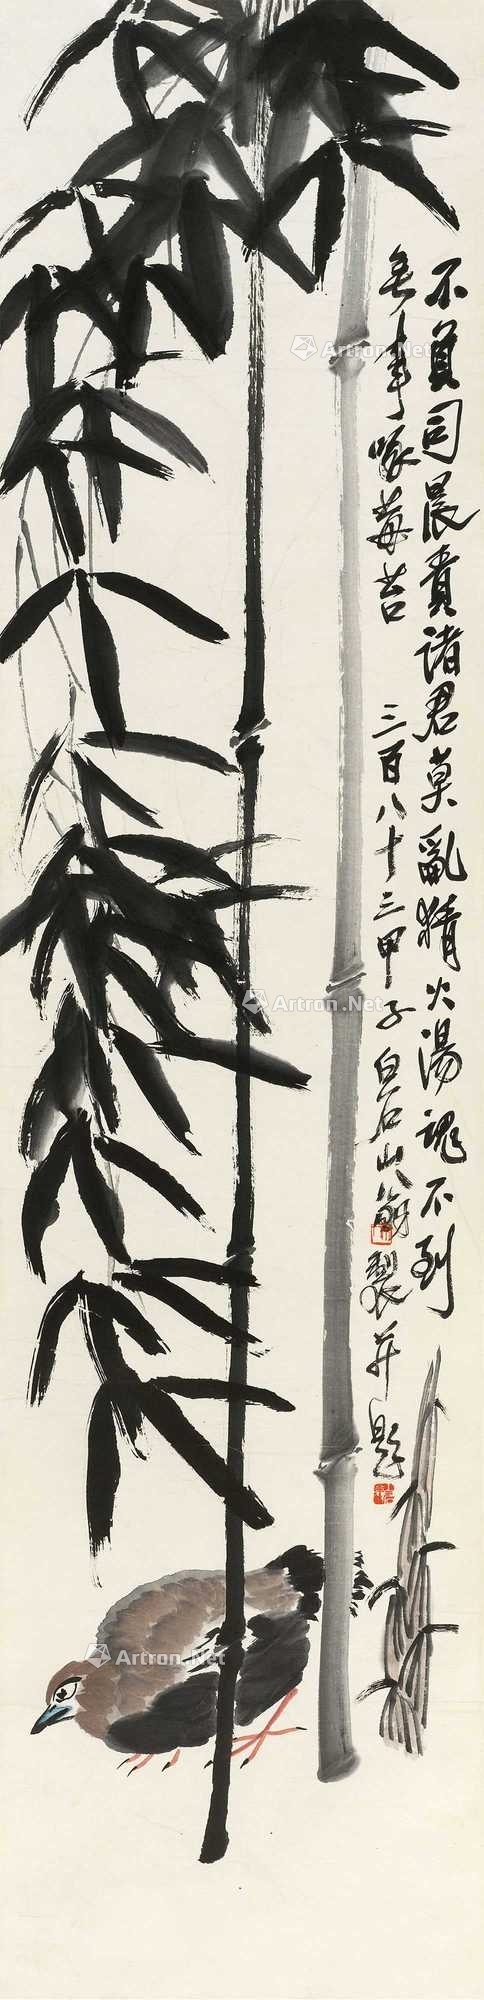 不負司晨責諸君莫亂猜火湯魂不到
無事啄莓苔 三百八十三甲子白石山翁製并題
Artron.Net
Artron.Net
Artron.Net